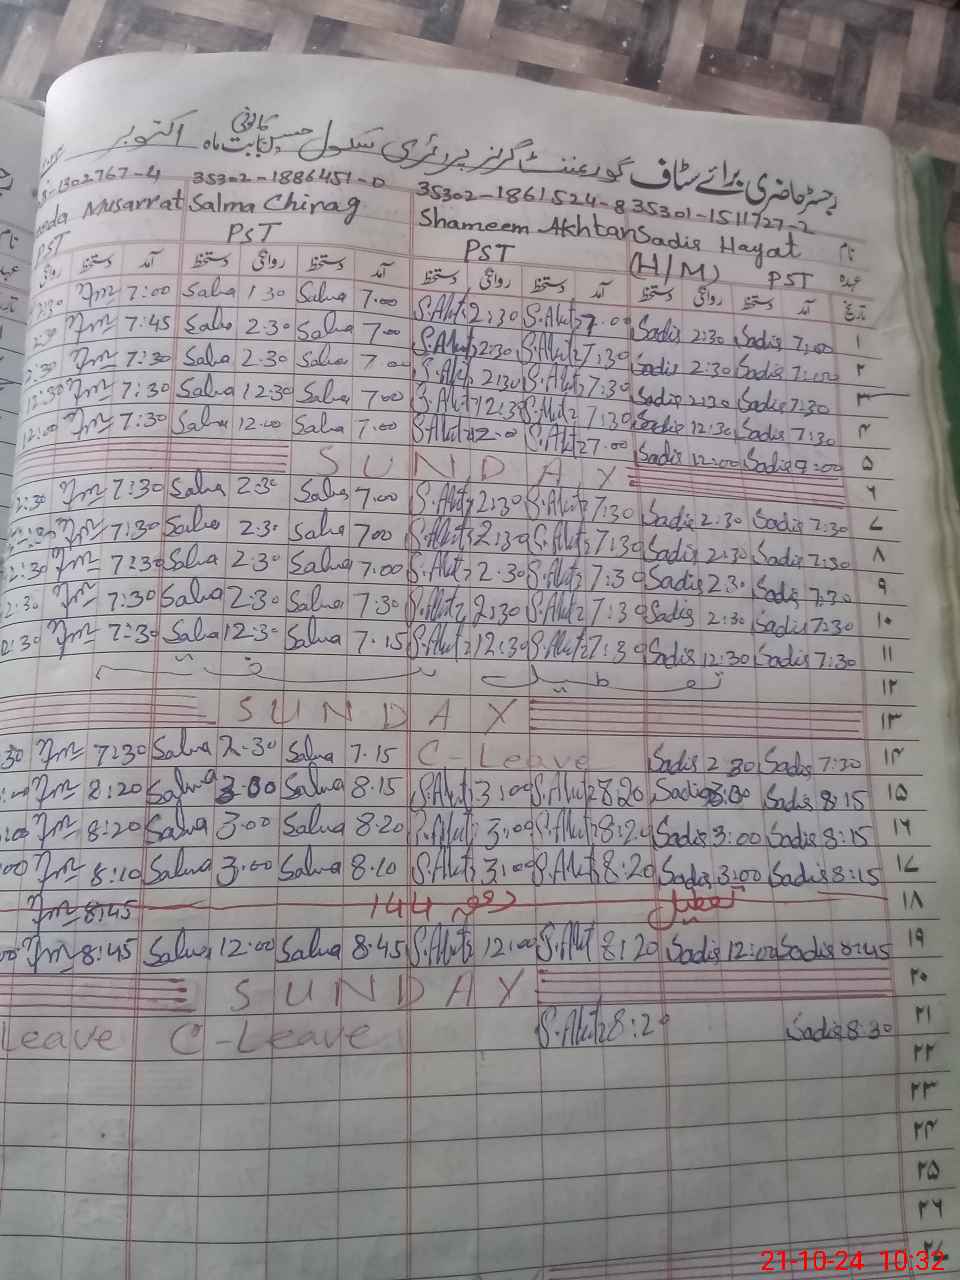 رجسٹر حاضری برائے سٹاف گورنمنٹ گرلز پرائمری سکول بابت ماہ اکتوبر
1302767-4 35302-1886451-0 35302-1861524-8 35301-1511727-2
Musarrat Salma Chirag Shameem Akhtar Sadis Hayat نام
PST PST PST (H/M) PST عہدہ
روانگی دستخط آمد دستخط روانگی دستخط آمد دستخط روانگی دستخط آمد دستخط روانگی دستخط آمد تاریخ
7:00 Salma 1 30 Salma 7.00 S.Akht 2:30 S.Akht 7.00 Sadis 2:30 Sadis 7:00 ۱
2:30 7:45 Salma 2.30 Salma 7.00 S.Akht 2:30 S.Akht 7:30 Sadis 2:30 Sadis 7:00 ۲
2:30 7:30 Salma 2.30 Salma 7.00 S.Akht 2:30 S.Akht 7:30 Sadis 2:30 Sadis 7:30 ۳
12:30 7:30 Salma 12.30 Salma 7.00 S.Akht 12:30 S.Akht 7:30 Sadis 12:30 Sadis 7:30 ۴
12:00 7:30 Salma 12.00 Salma 7.00 S.Akht 12.00 S.Akht 7.00 Sadis 12:00 Sadis 9:00 ۵
SUNDAY ۶
2:30 7:30 Salma 2.30 Salma 7.00 S.Akht 2:30 S.Akht 7:30 Sadis 2:30 Sadis 7:30 ۷
7:30 Salma 2.30 Salma 7.00 S.Akht 2:30 S.Akht 7:30 Sadis 2:30 Sadis 7:30 ۸
2:30 7:30 Salma 2.30 Salma 7.00 S.Akht 2.30 S.Akht 7:30 Sadis 2:30 Sadis 7:30 ۹
2:30 7:30 Salma 2.30 Salma 7.30 S.Akht 2:30 S.Akht 7:30 Sadis 2:30 Sadis 7:30 ۱۰
7:30 Salma 12.30 Salma 7.15 S.Akht 12:30 S.Akht 7:30 Sadis 12:30 Sadis 7:30 ۱۱
تعطیل ۱۲
SUNDAY ۱۳
:30 7:30 Salma 2.30 Salma 7.15 C-Leave Sadis 2:30 Sadis 7:30 ۱۴
8:20 Salma 3.00 Salma 8.15 S.Akht 3:00 S.Akht 8:20 Sadis 3:00 Sadis 8:15 ۱۵
:00 8:20 Salma 3.00 Salma 8.20 S.Akht 3:00 S.Akht 8:20 Sadis 3:00 Sadis 8:15 ۱۶
:00 8:10 Salma 3.00 Salma 8.10 S.Akht 3:00 S.Akht 8:20 Sadis 3:00 Sadis 8:15 ۱۷
8:45 تعطیل دفعہ 144 ۱۸
:00 8:45 Salma 12.00 Salma 8.45 S.Akht 12:00 S.Akht 8:20 Sadis 12:00 Sadis 8:45 ۱۹
SUNDAY ۲۰
Leave C-Leave S.Akht 8:20 Sadis 8:30 ۲۱
۲۲
۲۳
۲۴
۲۵
۲۶
۲۷
21-10-24 10:32